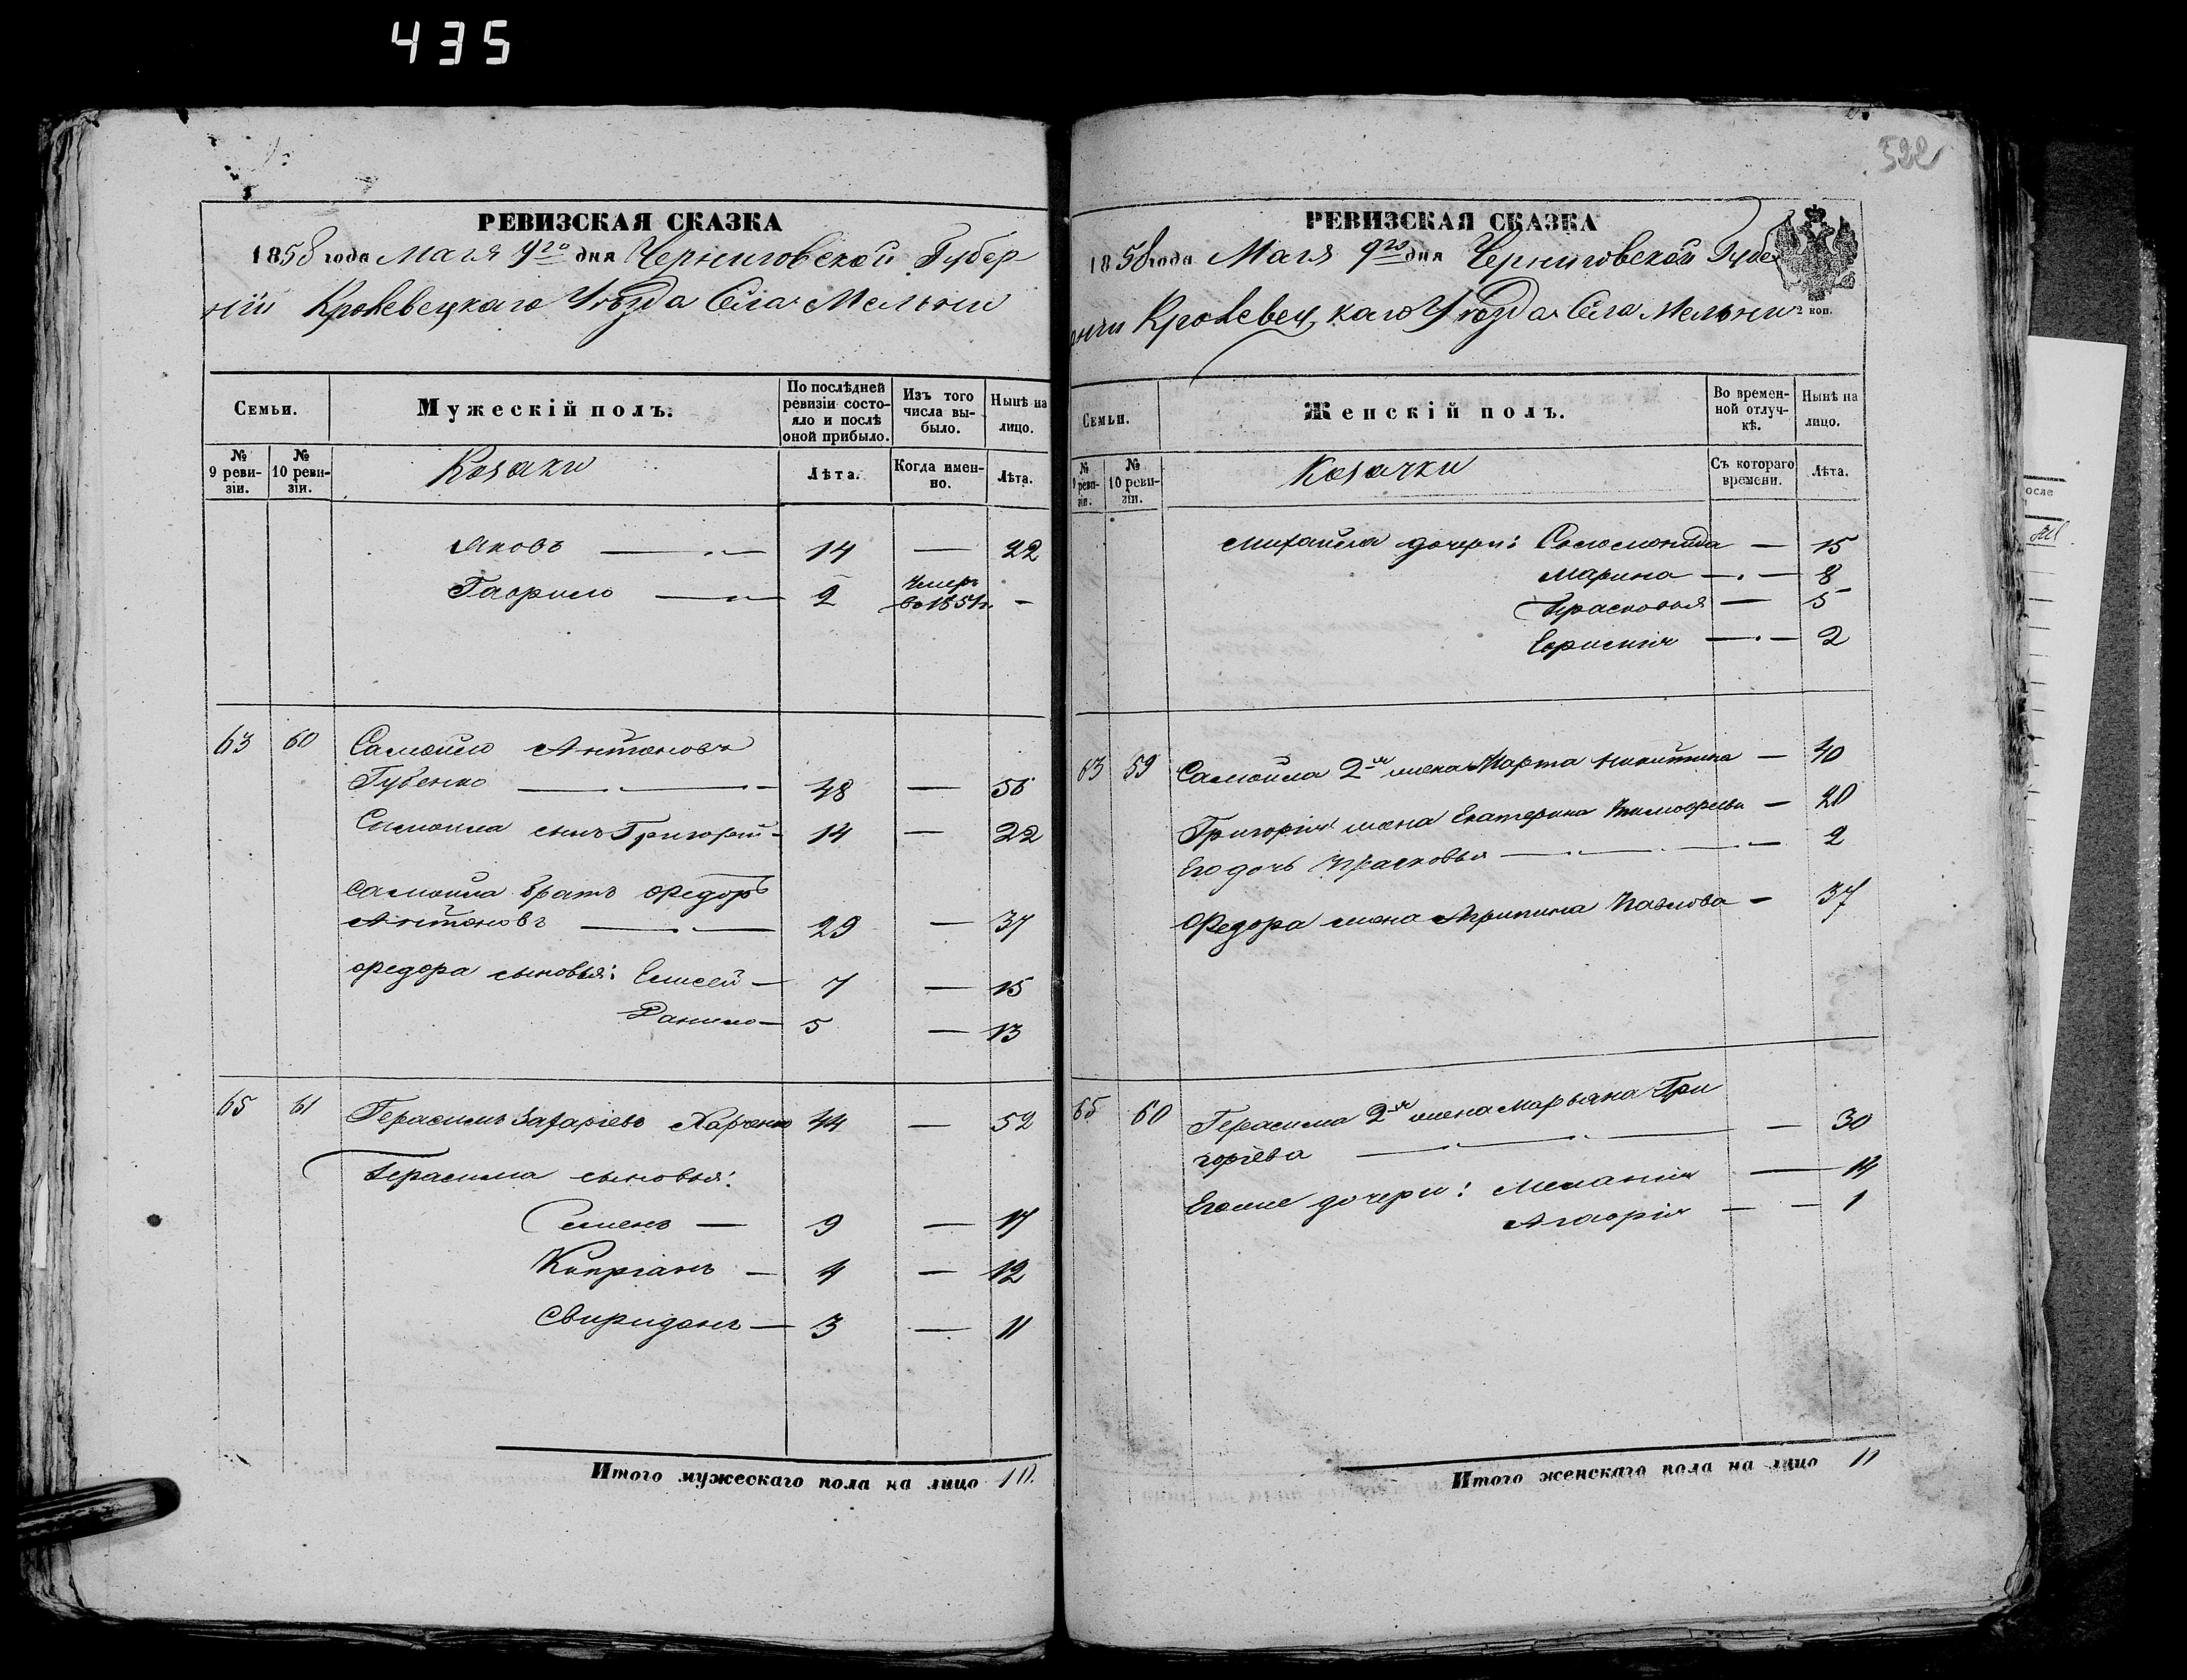 435
522
РЕВИЗСКАЯ СКАЗКА
1858 года Мая 9го дня Черниговской Губер
нии Кролевецкаго Уѣзда Села Мельни
Семьи.
Мужескій полъ.
По послѣдней ревизіи состояло и послѣ оной прибыло.
Изъ того числа выбыло.
Нынѣ на лицо.
№ 9 ревизіи.
№ 10 ревизіи.
Козаки
Лѣта.
Когда именно.
Лѣта.
Яковъ — 14 — 22
Гаврило — 2 Умеръ во 1851г. —
63 60 Самойло Антоновъ
Губенко — 48 — 56
Самойла сынъ Григорій — 14 — 22
Самойла братъ Федоръ
Антоновъ — 29 — 37
Федора сыновья: Елисей — 7 — 15
Данило — 5 — 13
65 61 Герасимъ Захаріевъ Харченко 44 — 52
Герасима сыновья:
Семенъ — 9 — 17
Кипріанъ — 4 — 12
Свиридонъ — 3 — 11
Итого мужескаго пола на лицо 10.
РЕВИЗСКАЯ СКАЗКА
1858 года Мая 9го дня Черниговской Губе
рніи Кролевецкаго Уѣзда Села Мельни
2 коп.
Семьи.
Женскій полъ.
Во временной отлучкѣ.
Нынѣ на лицо.
№ 9 ревизіи.
№ 10 ревизіи.
Козачки
Съ котораго времени.
Лѣта.
Михайла дочери: Соломонида — 15
Марина — 8
Прасковья — 5
Ефимія — 2
63 59 Самойла 2я жена Марта Никитина — 40
Григорія жена Екатерина Тимофеева — 20
Его дочь Прасковья — 2
Федора жена Агрипина Павлова — 37
65 60 Герасима 2я жена Марьяна Гри
горіева — 30
Егоже дочери: Меланія — 14
Агафія — 1
Итого женскаго пола на лицо 11